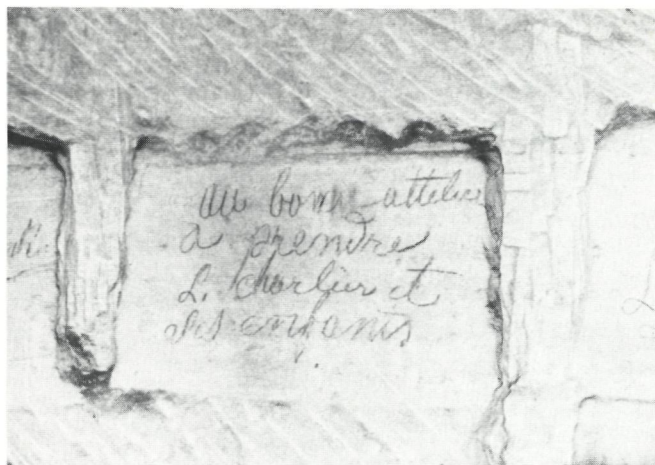 au bon attelier
a prendre
L. charlier et
ses enfants